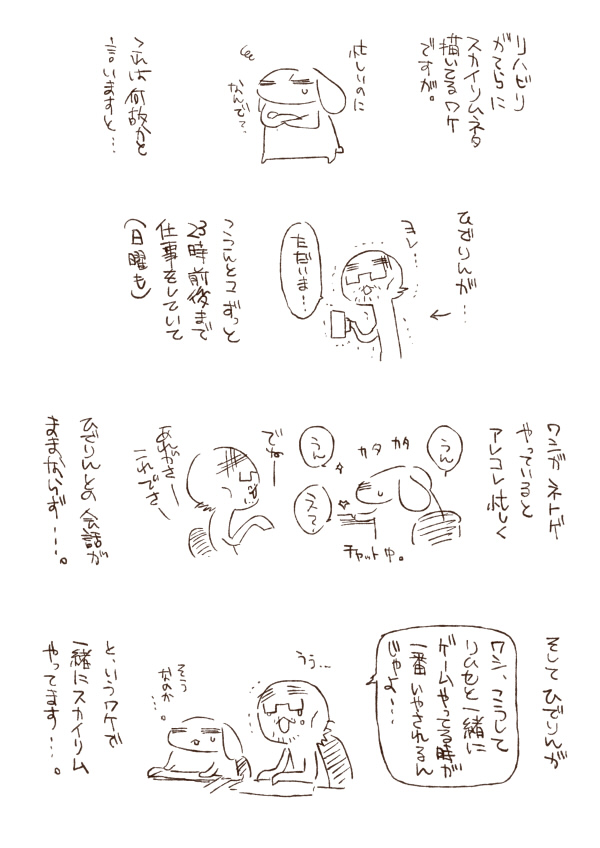 リハビリ
がてらに
スカイリムネタ
描いてるワケ
ですが。
忙しいのに
なんで?
これは何故かと
言いますと…
ひでりんが…
ヨレ…
ただいま…
ここんとコずっと
23時前後まで
仕事をしていて
(日曜も)
ワシがネトゲ
やっていると
アレコレ忙しく
うん
カタ カタ
うん
えっ?
チャット中。
でねー
あれがさー
これでさー
ひでりんとの会話が
ままならず…。
そしてひでりんが
ワシ、こうして
りむセと一緒に
ゲームやってる時が
一番いやされるん
じゃよ…
うぅ…
そう
なのか…
と、いうワケで
一緒にスカイリム
やってます…。